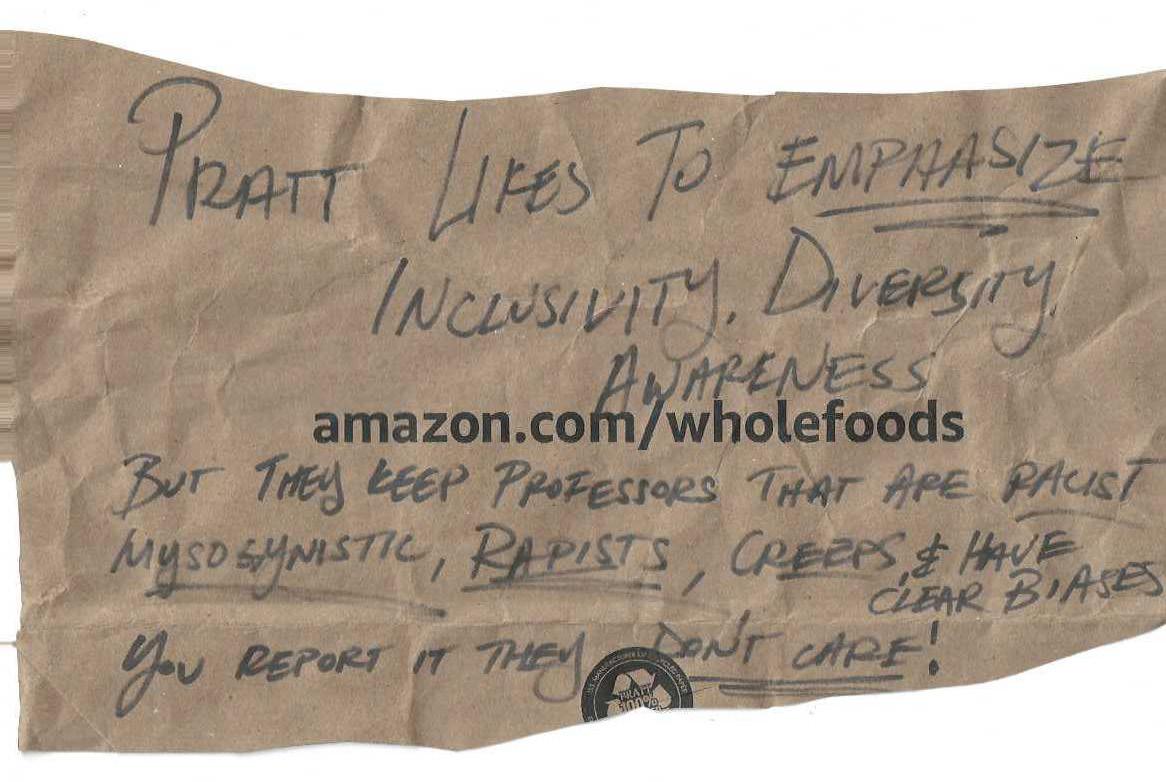 PRATT LIKES TO EMPHASIZE
INCLUSIVITY, DIVERSITY,
AWARENESS
amazon.com/wholefoods
BUT THEY KEEP PROFESSORS THAT ARE RACIST
MYSOGYNISTIC, RAPISTS, CREEPS, & HAVE
CLEAR BIASES
YOU REPORT IT THEY DON'T CARE!
PRATT
100%